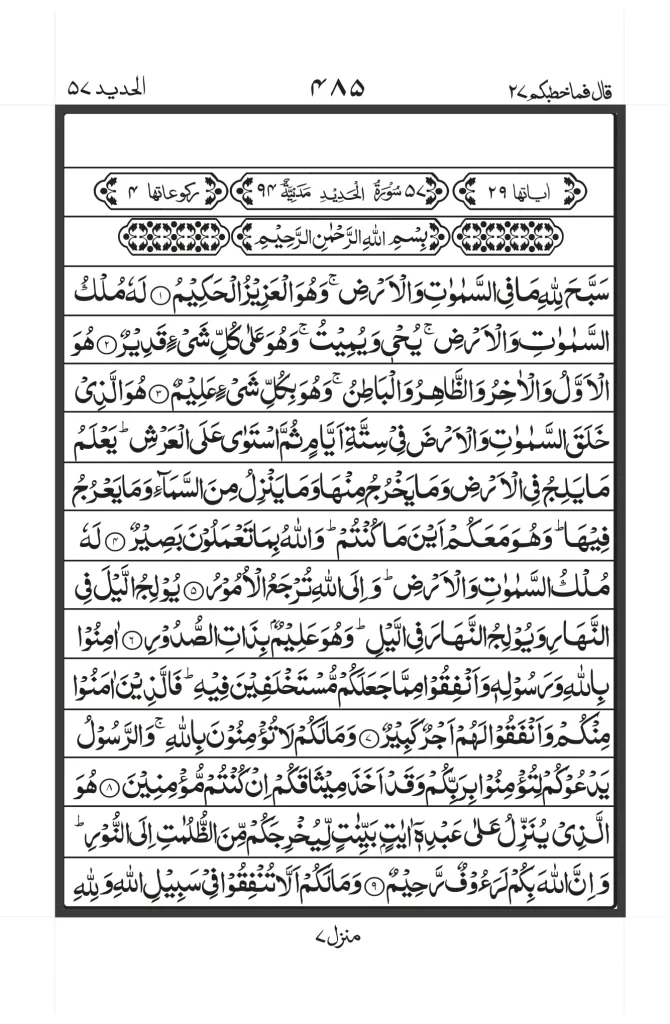 قال فما خطبكم ۲۷ ۴۸۵ الحديد ۵۷
اٰیاتها ۲۹ ۵۷ سُوْرَةُ الْحَدِيْدِ مَدَنِيَّةٌ ۹۴ رکوعاتها ۴
بِسْمِ اللّٰهِ الرَّحْمٰنِ الرَّحِيْمِ
سَبَّحَ لِلّٰهِ مَا فِي السَّمٰوٰتِ وَالْاَرْضِ ۚ وَهُوَ الْعَزِيْزُ الْحَكِيْمُ ۝۱ لَهٗ مُلْكُ
السَّمٰوٰتِ وَالْاَرْضِ ۚ يُحْيٖ وَيُمِيْتُ ۚ وَهُوَ عَلٰى كُلِّ شَيْءٍ قَدِيْرٌ ۝۲ هُوَ
الْاَوَّلُ وَالْاٰخِرُ وَالظَّاهِرُ وَالْبَاطِنُ ۚ وَهُوَ بِكُلِّ شَيْءٍ عَلِيْمٌ ۝۳ هُوَ الَّذِيْ
خَلَقَ السَّمٰوٰتِ وَالْاَرْضَ فِيْ سِتَّةِ اَيَّامٍ ثُمَّ اسْتَوٰى عَلَى الْعَرْشِ ؕ يَعْلَمُ
مَا يَلِجُ فِي الْاَرْضِ وَمَا يَخْرُجُ مِنْهَا وَمَا يَنْزِلُ مِنَ السَّمَآءِ وَمَا يَعْرُجُ
فِيْهَا ؕ وَهُوَ مَعَكُمْ اَيْنَ مَا كُنْتُمْ ؕ وَاللّٰهُ بِمَا تَعْمَلُوْنَ بَصِيْرٌ ۝۴ لَهٗ
مُلْكُ السَّمٰوٰتِ وَالْاَرْضِ ؕ وَاِلَى اللّٰهِ تُرْجَعُ الْاُمُوْرُ ۝۵ يُوْلِجُ الَّيْلَ فِي
النَّهَارِ وَيُوْلِجُ النَّهَارَ فِي الَّيْلِ ؕ وَهُوَ عَلِيْمٌۢ بِذَاتِ الصُّدُوْرِ ۝۶ اٰمِنُوْا
بِاللّٰهِ وَرَسُوْلِهٖ وَاَنْفِقُوْا مِمَّا جَعَلَكُمْ مُّسْتَخْلَفِيْنَ فِيْهِ ؕ فَالَّذِيْنَ اٰمَنُوْا
مِنْكُمْ وَاَنْفَقُوْا لَهُمْ اَجْرٌ كَبِيْرٌ ۝۷ وَمَا لَكُمْ لَا تُؤْمِنُوْنَ بِاللّٰهِ ۚ وَالرَّسُوْلُ
يَدْعُوْكُمْ لِتُؤْمِنُوْا بِرَبِّكُمْ وَقَدْ اَخَذَ مِيْثَاقَكُمْ اِنْ كُنْتُمْ مُّؤْمِنِيْنَ ۝۸ هُوَ
الَّذِيْ يُنَزِّلُ عَلٰى عَبْدِهٖٓ اٰيٰتٍۭ بَيِّنٰتٍ لِّيُخْرِجَكُمْ مِّنَ الظُّلُمٰتِ اِلَى النُّوْرِ ؕ
وَاِنَّ اللّٰهَ بِكُمْ لَرَءُوْفٌ رَّحِيْمٌ ۝۹ وَمَا لَكُمْ اَلَّا تُنْفِقُوْا فِيْ سَبِيْلِ اللّٰهِ وَلِلّٰهِ
منزل ۷